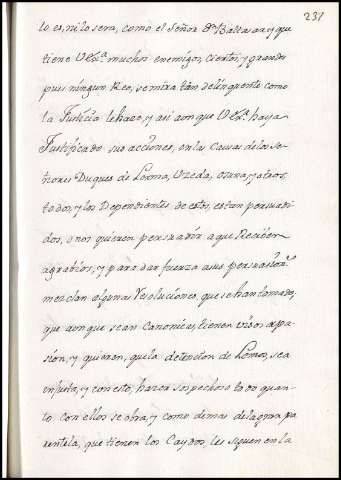 231
lo es, ni lo sera, como el Señor Dn. Baltasar, y que
tiene V. Exª. muchos enemigos, ciertos, y grandes
pues ningun Reo, se mira tan delinquente como
la Justicia le hace, y asi aunque V. Exª. haya
Justificado sus acciones, en las Causas de los Se-
ñores Duques de Lerma, Uzeda, osuna, y otros,
todos, y los Dependientes de estos, estan persuadi-
dos, o nos quieren persuadir a que Reciben
agrabios, y para dar fuerza a sus persuasiones
mezclan algunas Resoluciones, que se han tomado,
que aunque sean Canonicas, tienen visos de pa-
sion, y quieren, que la detencion de Lemos, sea
injusta, y con esto, hacen sospechoso todo quan-
to con ellos se obra, y como demas de la gran pa
rentela, que tienen los Caydos, les siguen en la